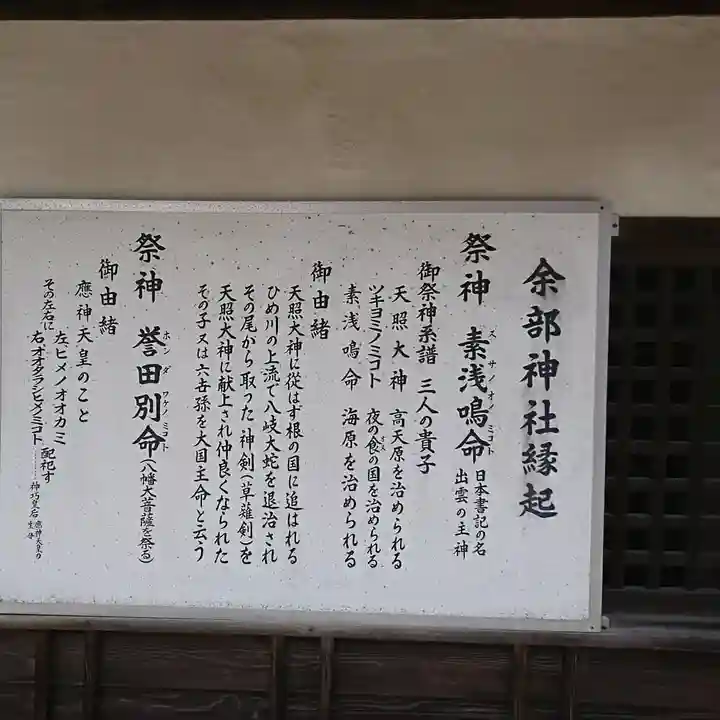 余部神社縁起
祭神 素浅鳴命 日本書記の名
出雲の主神
スサノオノミコト
御祭神系譜 三人の貴子
天照大神 高天原を治められる
ツキヨミノミコト 夜の食の国を治められる
オス
素浅鳴命 海原を治められる
御由緒
天照大神に従はず根の国に追はれる
ひめ川の上流で八岐大蛇を退治され
その尾から取った神剣(草薙剣)を
天照大神に献上され仲良くなられた
その子又は六世孫を大国主命と云う
祭神 誉田別命(八幡大菩薩を祭る)
ホンダワケノミコト
御由緒
應神天皇のこと
その左右に
左、ヒメノオオカミ
右、オオダラシヒメノミコト 配祀す
神巧皇后 應神天皇の
生母